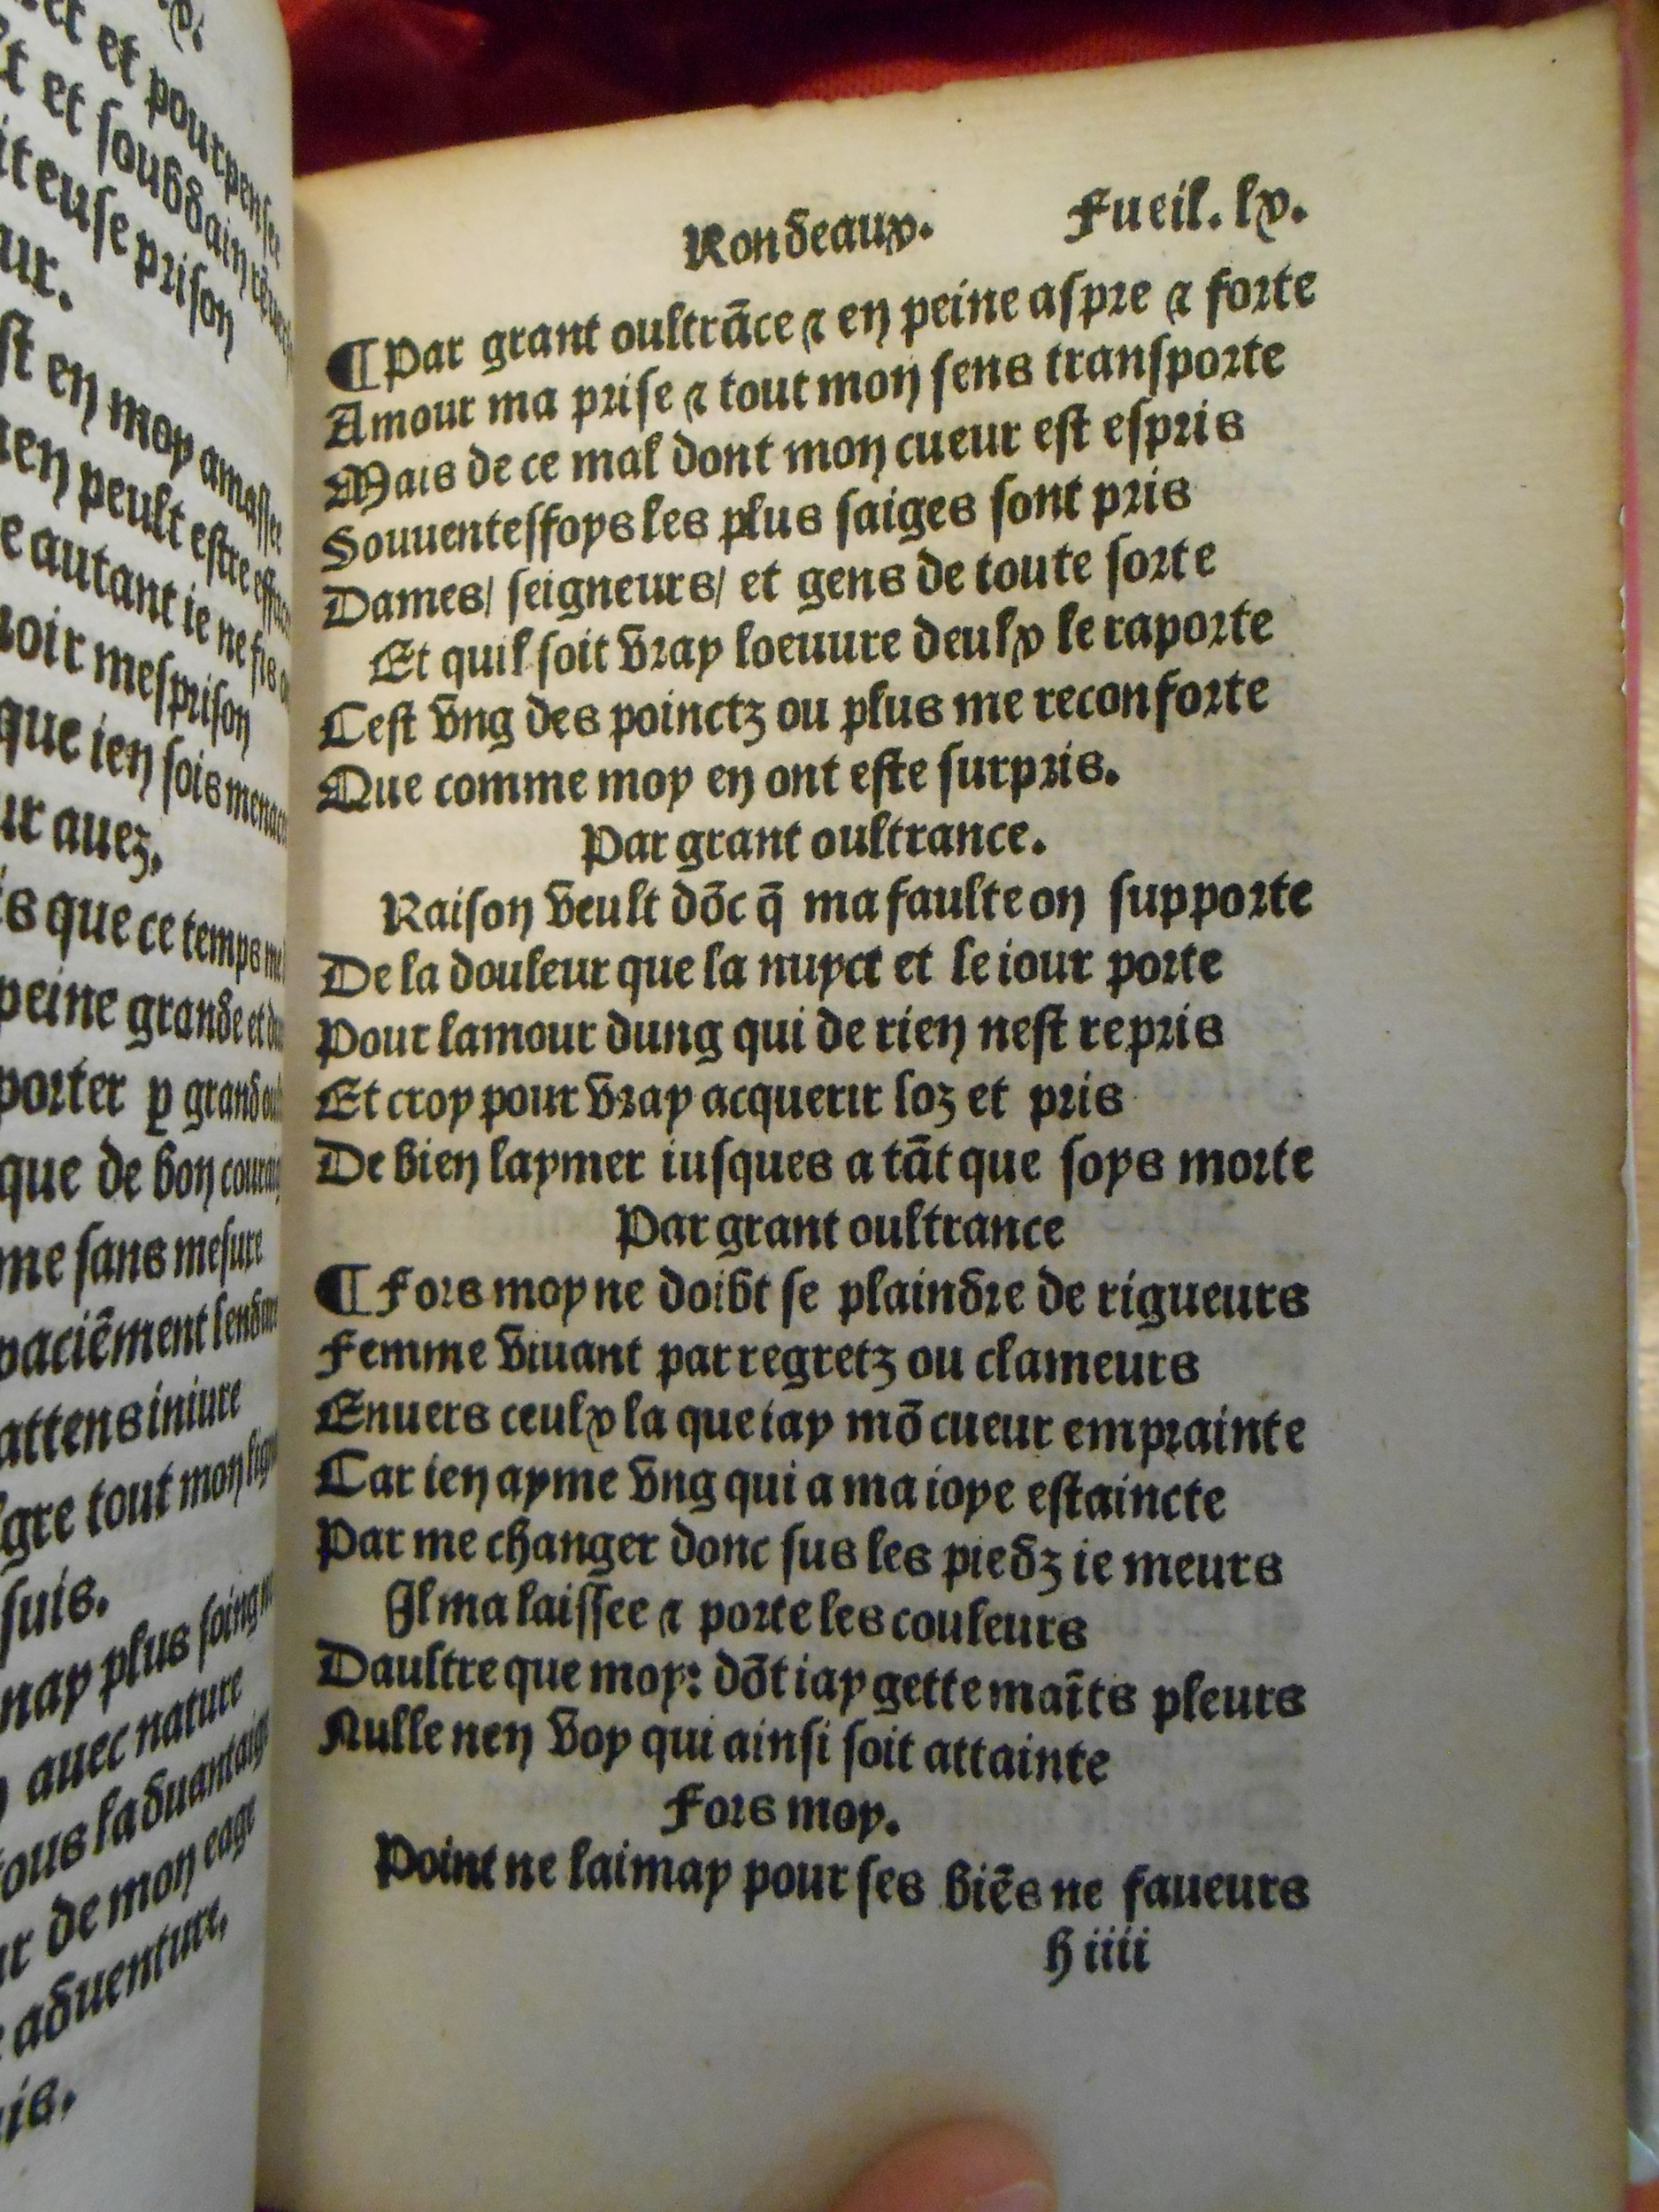 et pourpensee
et soubdain
iteuse prison
ur.
st en moy amassee
ien peult estre
e autant ie ne fis
loir mesprison
que ien sois
ur auez.
s que ce temps
peine grande et
porter ꝑ grand
que de bon
me sans mesure
paciēment
attens iniure
gre tout mon
suis.
nay plus soing
auec nature
ous laduantaige
r de mon eage
aduenture,
is.
Rondeaux. Fueil. lx.
¶ Par grant oultrāce ⁊ en peine aspre ⁊ forte
Amour ma prise ⁊ tout mon sens transporte
Mais de ce mal dont mon cueur est espris
Souuentesfoys les plus saiges sont pris
Dames/ seigneurs/ et gens de toute sorte
Et quil soit vray loeuure deulx le raporte
Cest vng des poinctz ou plus me reconforte
Que comme moy en ont este surpris.
Par grant oultrance.
Raison veult dōc q̄ ma faulte on supporte
De la douleur que la nuyct et le iour porte
Pour lamour dung qui de rien nest repris
Et croy pour vray acquerir loz et pris
De bien laymer iusques a tāt que soys morte
Par grant oultrance
¶ Fors moy ne doibt se plaindre de rigueurs
Femme viuant par regretz ou clameurs
Enuers ceulx la que iay mō cueur emprainte
Car ien ayme vng qui a ma ioye estaincte
Par me changer donc sus les piedz ie meurs
Il ma laissee ⁊ porte les couleurs
Daultre que moy: dōt iay gette maīts pleurs
Nulle nen voy qui ainsi soit attainte
Fors moy.
Point ne laimay pour ses biēs ne faueurs
h iiii